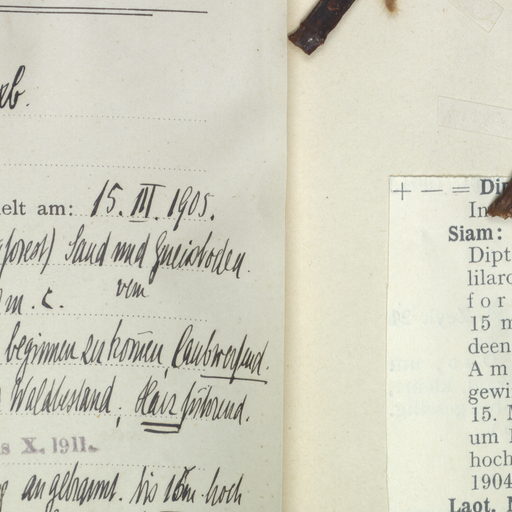 elt am: 15. III. 1905.
forest) Sand und Gneisboden.
m. c.
beginnen zu kom̄en, Laubwerfend.
Waldbestand, Harz führend.
s X. 1911.
angebrannt. bis 15m hoch
+ — = Di
In
Siam:
Dipt
lilaro
for
15 m
deen
Am
gewi
15. M
um
hoch
1904
Laot. M